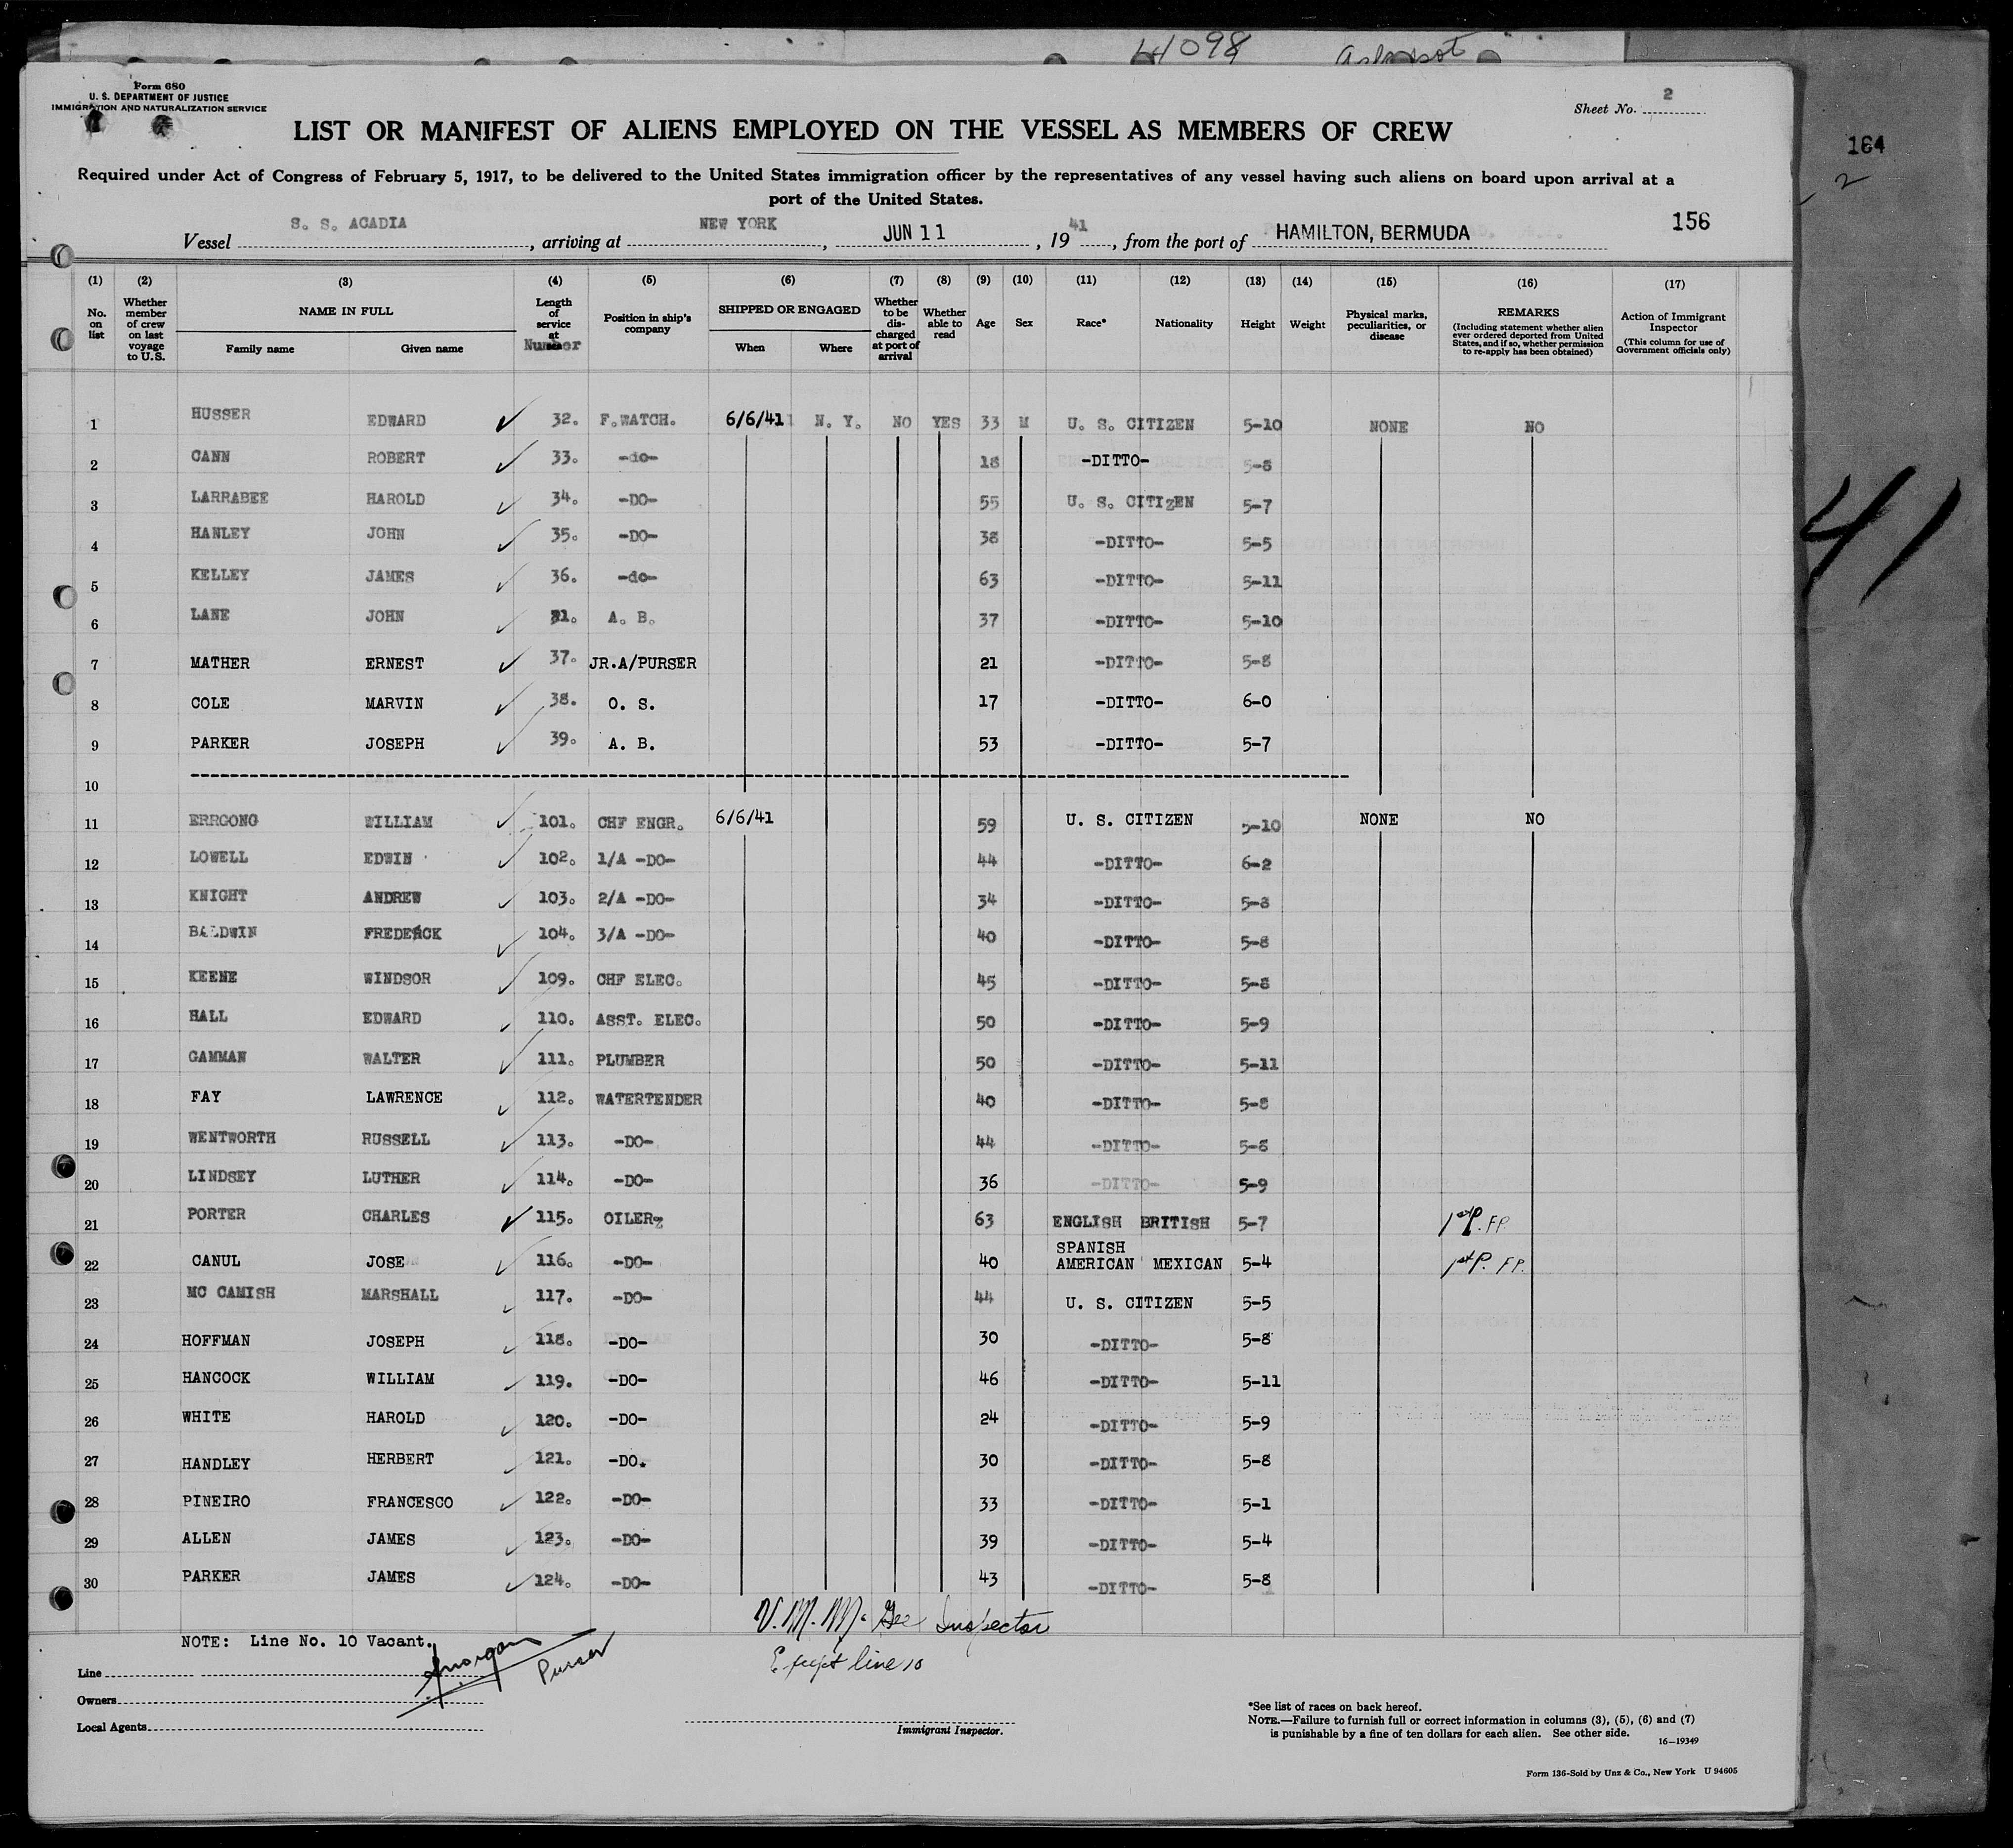 4098
Form 680
U. S. DEPARTMENT OF JUSTICE
IMMIGRATION AND NATURALIZATION SERVICE
Sheet No. 2
LIST OR MANIFEST OF ALIENS EMPLOYED ON THE VESSEL AS MEMBERS OF CREW
164
2
Required under Act of Congress of February 5, 1917, to be delivered to the United States immigration officer by the representatives of any vessel having such aliens on board upon arrival at a
port of the United States.
Vessel S. S. ACADIA, arriving at NEW YORK, JUN 11, 1941, from the port of HAMILTON, BERMUDA 156
(1) No. on list (2) Whether member of crew on last voyage to U.S. (3) NAME IN FULL Family name Given name (4) Length of service at Number (5) Position in ship's company (6) SHIPPED OR ENGAGED When Where (7) Whether to be discharged at port of arrival (8) Whether able to read (9) Age (10) Sex (11) Race* (12) Nationality (13) Height (14) Weight (15) Physical marks, peculiarities, or disease (16) REMARKS (Including statement whether alien ever ordered deported from United States, and if so, whether permission to re-apply has been obtained) (17) Action of Immigrant Inspector (This column for use of Government officials only)
1 HUSSER EDWARD ✓ 32. F.WATCH. 6/6/41 N. Y. NO YES 33 M U. S. CITIZEN 5-10 NONE NO
2 CANN ROBERT ✓ 33. -do- 18 -DITTO- 5-8
3 LARRABEE HAROLD ✓ 34. -DO- 55 U. S. CITIZEN 5-7
4 HANLEY JOHN ✓ 35. -DO- 38 -DITTO- 5-5
5 KELLEY JAMES ✓ 36. -do- 63 -DITTO- 5-11
6 LANE JOHN ✓ A. B. 37 -DITTO- 5-10
7 MATHER ERNEST ✓ 37. JR.A/PURSER 21 -DITTO- 5-8
8 COLE MARVIN ✓ 38. O. S. 17 -DITTO- 6-0
9 PARKER JOSEPH ✓ 39. A. B. 53 -DITTO- 5-7
10
11 ERRGONG WILLIAM ✓ 101. CHF ENGR. 6/6/41 59 U. S. CITIZEN 5-10 NONE NO
12 LOWELL EDWIN ✓ 102. 1/A -DO- 44 -DITTO- 6-2
13 KNIGHT ANDREW ✓ 103. 2/A -DO- 34 -DITTO- 5-8
14 BALDWIN FREDERCK ✓ 104. 3/A -DO- 40 -DITTO- 5-8
15 KEENE WINDSOR ✓ 109. CHF ELEC. 45 -DITTO- 5-8
16 HALL EDWARD ✓ 110. ASST. ELEC. 50 -DITTO- 5-9
17 GAMMAN WALTER ✓ 111. PLUMBER 50 -DITTO- 5-11
18 FAY LAWRENCE ✓ 112. WATERTENDER 40 -DITTO- 5-8
19 WENTWORTH RUSSELL ✓ 113. -DO- 44 -DITTO- 5-8
20 LINDSEY LUTHER ✓ 114. -DO- 36 -DITTO- 5-9
21 PORTER CHARLES ✓ 115. OILER 63 ENGLISH BRITISH 5-7 1st P. FP.
22 CANUL JOSE ✓ 116. -DO- 40 SPANISH AMERICAN MEXICAN 5-4 1st P. FP.
23 MC CAMISH MARSHALL ✓ 117. -DO- 44 U. S. CITIZEN 5-5
24 HOFFMAN JOSEPH ✓ 118. -DO- 30 -DITTO- 5-8
25 HANCOCK WILLIAM ✓ 119. -DO- 46 -DITTO- 5-11
26 WHITE HAROLD ✓ 120. -DO- 24 -DITTO- 5-9
27 HANDLEY HERBERT ✓ 121. -DO. 30 -DITTO- 5-8
28 PINEIRO FRANCESCO ✓ 122. -DO- 33 -DITTO- 5-1
29 ALLEN JAMES ✓ 123. -DO- 39 -DITTO- 5-4
30 PARKER JAMES ✓ 124. -DO- 43 -DITTO- 5-8
41
V. M. McGee Inspector
Except line 10
NOTE: Line No. 10 Vacant.
Morgan
Purser
Line
Owners
Local Agents
Immigrant Inspector.
*See list of races on back hereof.
NOTE.—Failure to furnish full or correct information in columns (3), (5), (6) and (7)
is punishable by a fine of ten dollars for each alien. See other side.
16—19349
Form 136-Sold by Unz & Co., New York U 94605